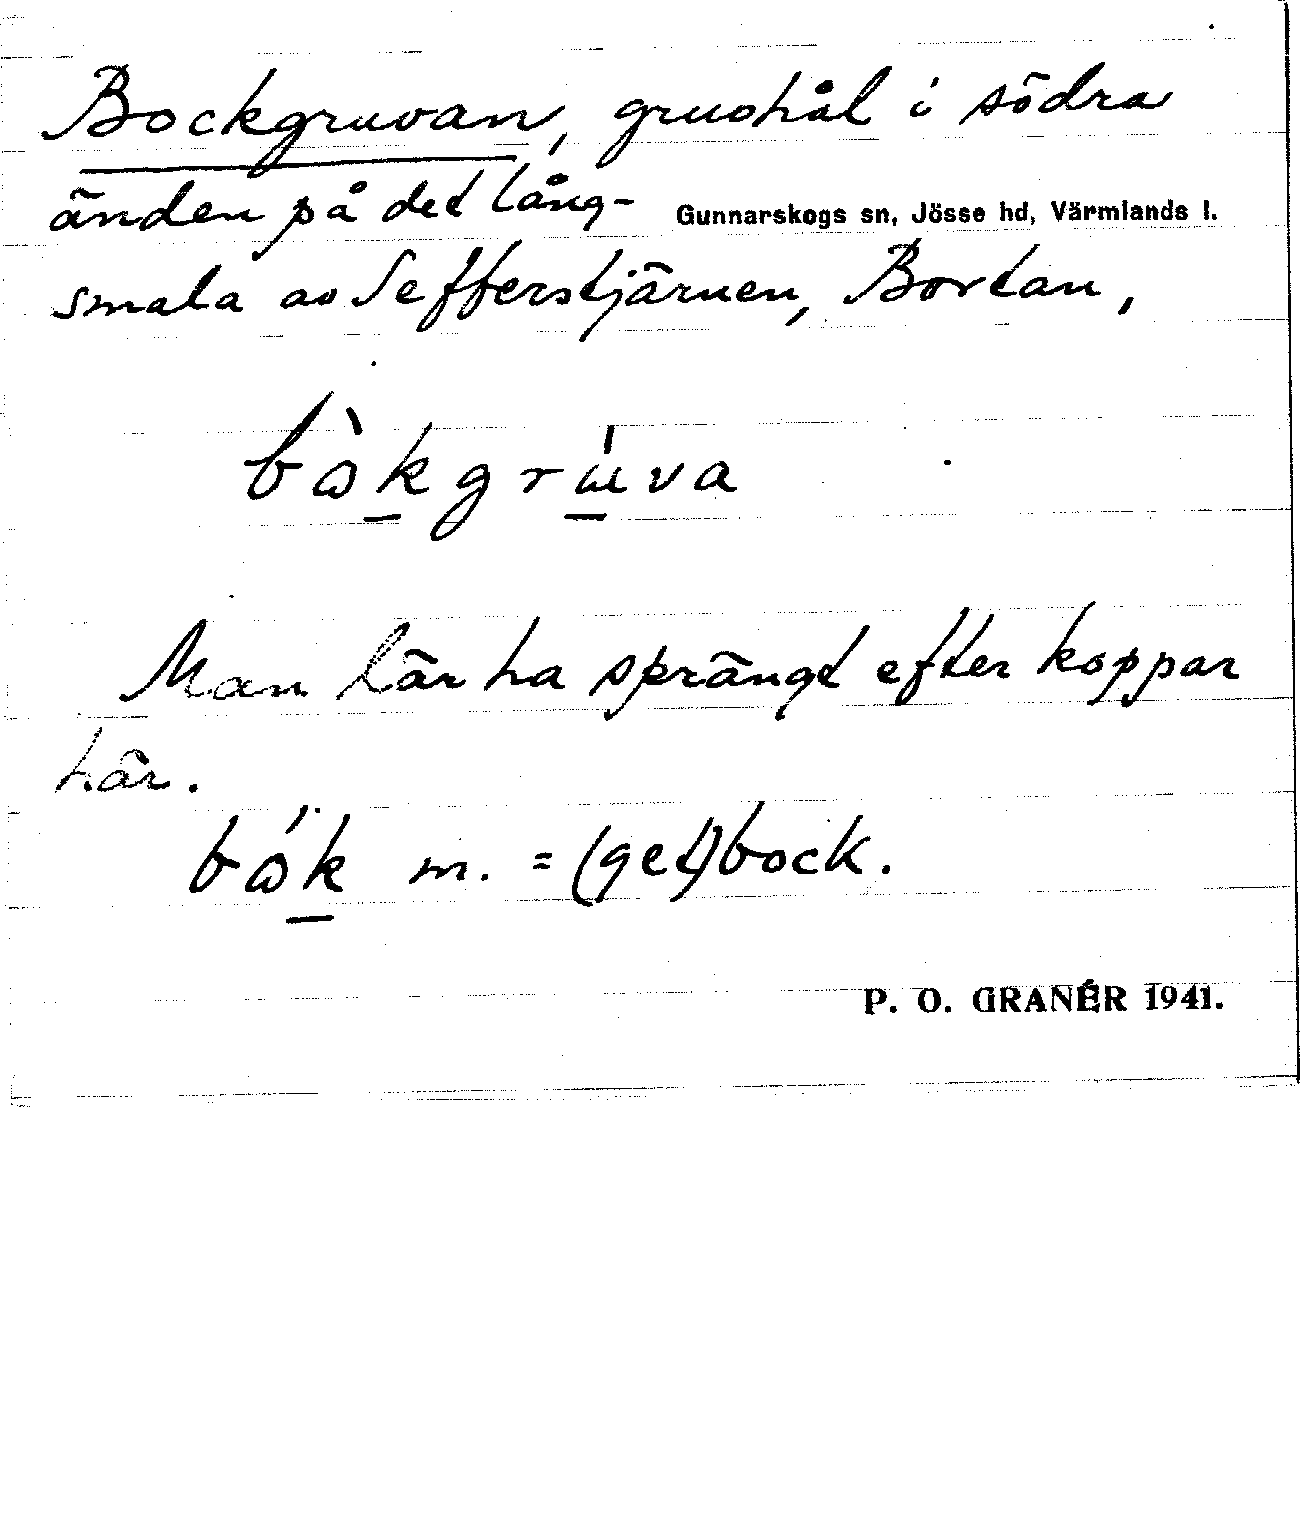 Bockgruvan, gruvhål i södra
änden på det lång-
Gunnarskogs sn, Jösse hd, Värmlands l.
smala av Sefferstjärnen, Bortan,
bὼk̲grɯ̲́va
Man lär ha sprängt efter koppar
här.
bώk̲ m. = (get)bock.
P. O. GRANÉR 1941.